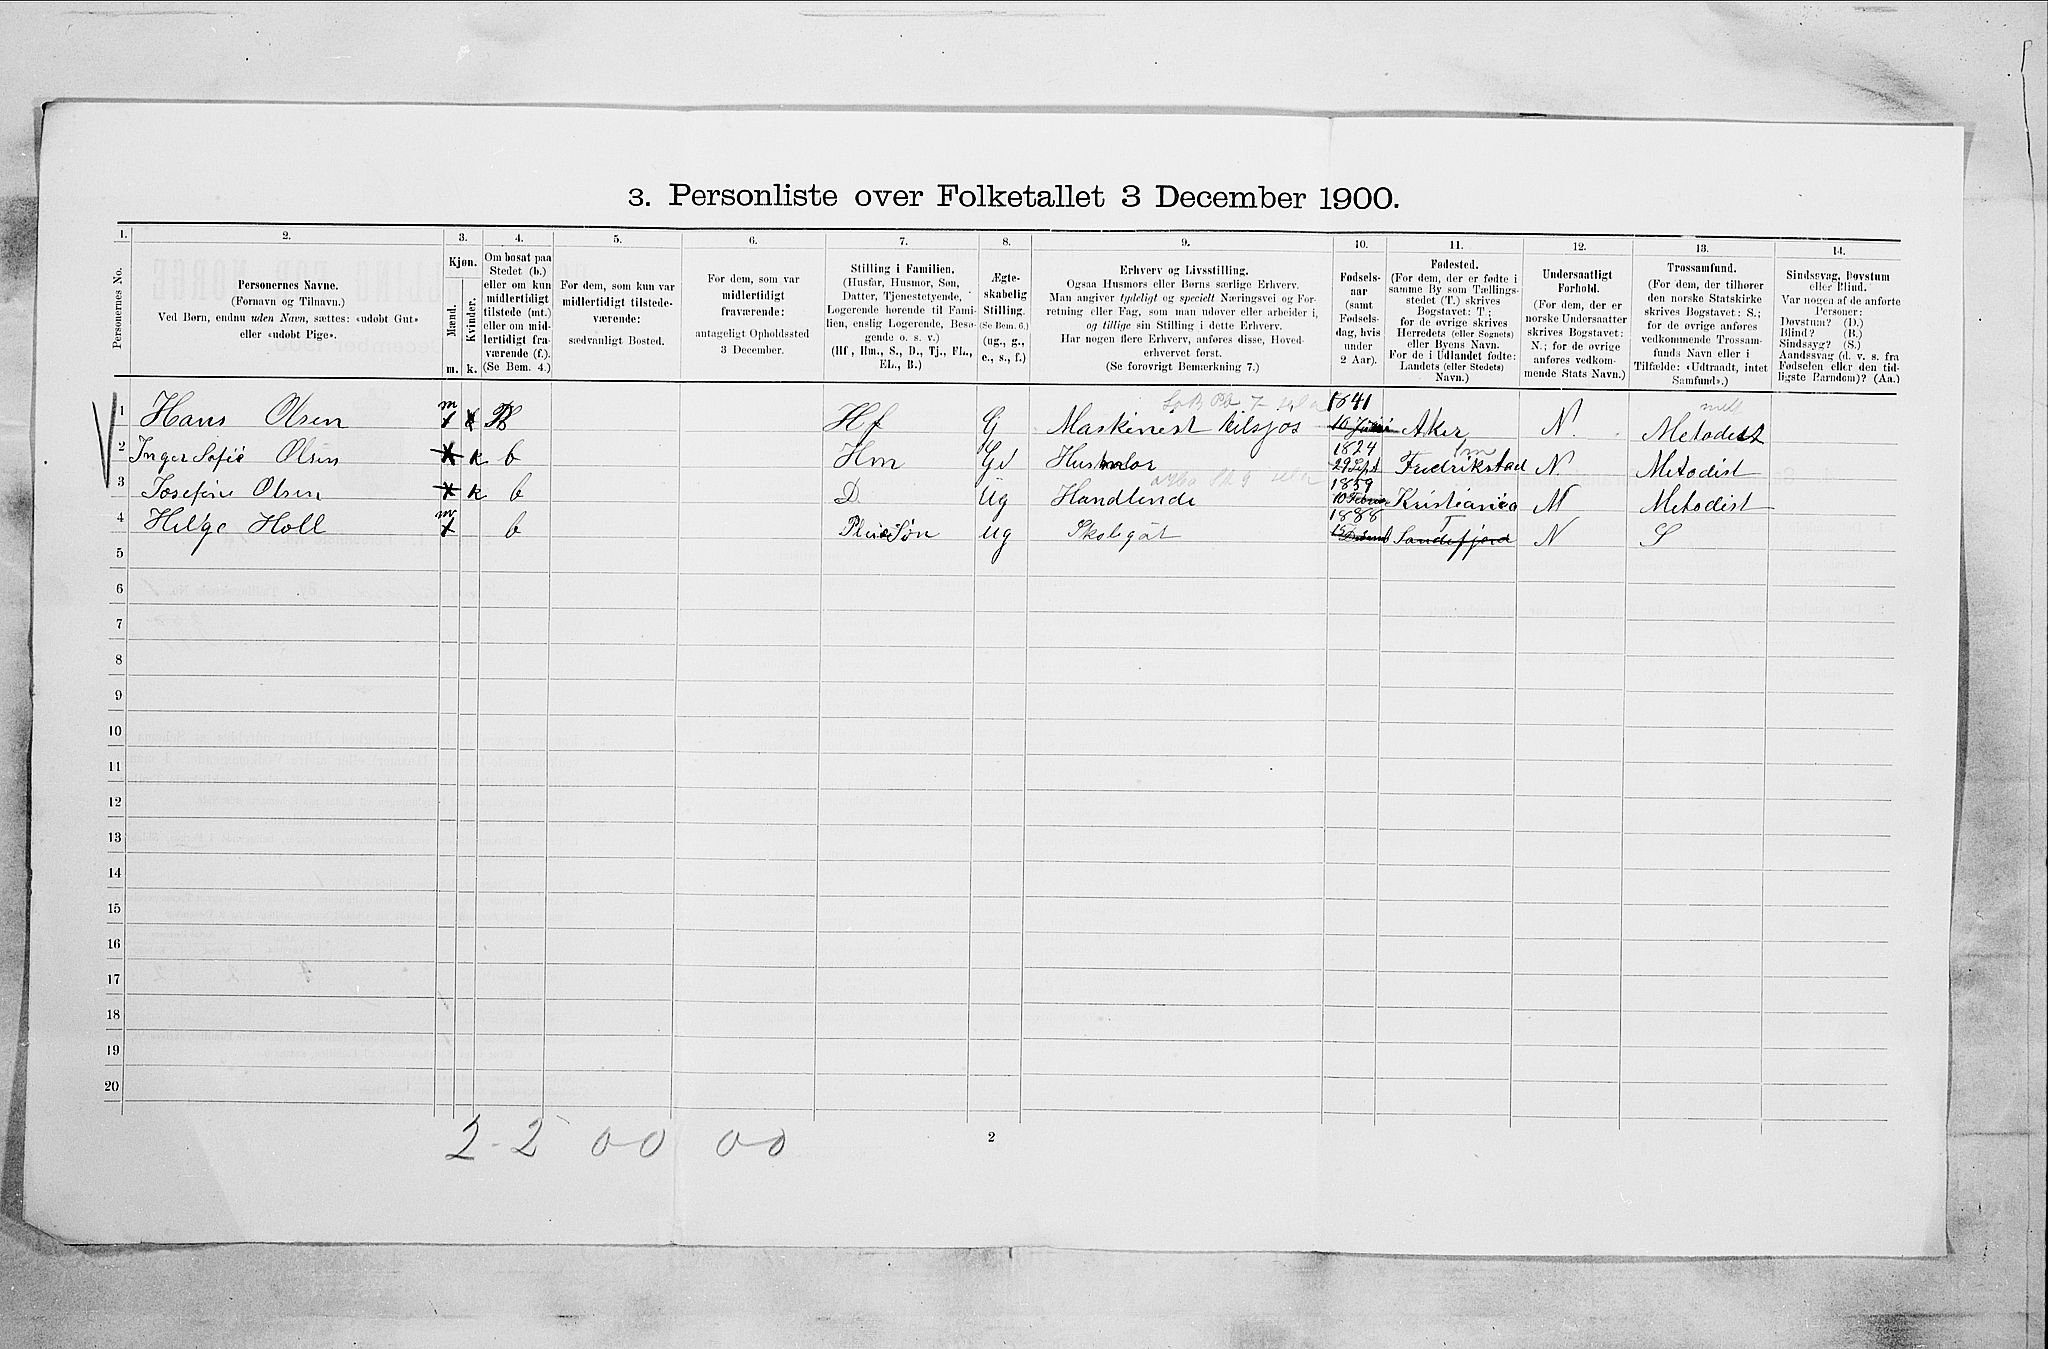 3. Personliste over Folketallet 3 December 1900.
1. 2. 3. 4. 5. 6. 7. 8. 9. 10. 11. 12. 13. 14.
Personernes No.
Personernes Navne.
(Fornavn og Tilnavn.)
Ved Børn, endnu uden Navn, sættes: «udøbt Gut»
eller «udøbt Pige».
Kjøn.
Mænd.
Kvinder.
m. k.
Om bosat paa
Stedet (b.)
eller om kun
midlertidigt
tilstede (mt.)
eller om mid-
lertidigt fra-
værende (f.).
(Se Bem. 4.)
For dem, som kun var
midlertidigt tilstede-
værende:
sædvanligt Bosted.
For dem, som var
midlertidigt
fraværende:
antageligt Opholdssted
3 December.
Stilling i Familien.
(Husfar, Husmor, Søn,
Datter, Tjenestetyende,
Logerende hørende til Fami-
lien, enslig Logerende, Besø-
gende o. s. v.)
(Hf., Hm., S., D., Tj., FL.,
EL., B.)
Ægte-
skabelig
Stilling.
(Se Bem. 6.)
(ug., g.,
e., s., f.)
Erhverv og Livsstilling.
Ogsaa Husmors eller Børns særlige Erhverv.
Man angiver tydeligt og specielt Næringsvei og For-
retning eller Fag, som man udøver eller arbeider i,
og tillige sin Stilling i dette Erhverv.
Har nogen flere Erhverv, anføres disse, Hoved-
erhvervet først.
(Se forøvrigt Bemærkning 7.)
Fødsels-
aar
(samt
Fødsels-
dag, hvis
under
2 Aar).
Fødested.
(For dem, der er fødte i
samme By som Tællings-
stedet (T.) skrives
Bogstavet: T;
for de øvrige skrives
Herredets (eller Sognets)
eller Byens Navn.
For de i Udlandet fødte:
Landets (eller Stedets)
Navn.)
Undersaatligt
Forhold.
(For dem, der er
norske Undersaatter
skrives Bogstavet:
N.; for de øvrige
anføres vedkom-
mende Stats Navn.)
Trossamfund.
(For dem, der tilhører
den norske Statskirke
skrives Bogstavet: S.;
for de øvrige anføres
vedkommende Trossam-
funds Navn eller i
Tilfælde: «Udtraadt, intet
Samfund».)
Sindssvag, Døvstum
eller Blind.
Var nogen af de anførte
Personer:
Døvstum? (D.)
Blind? (B.)
Sindssyg? (S.)
Aandssvag (d. v. s. fra
Fødselen eller den tid-
ligste Barndom)? (Aa.)
1 Hans Olsen m B Hf G Maskinest tilsjøs 1841 Aker N. Metodist
2 Inger Sofie Olsen k b Hm G Husmor 1824 29 Sept Fredrikstad N Metodist
3 Josefine Olsen k b D Ug Handlende 1859 10 Kristiania N Metodist
4 Helge Holl m b Pleie Søn Ug Skolegut 1888 15 T Sandefjord N S
5
6
7
8
9
10
11
12
13
14
15
16
17
18
19
20
2-2 0-0 0-0
2